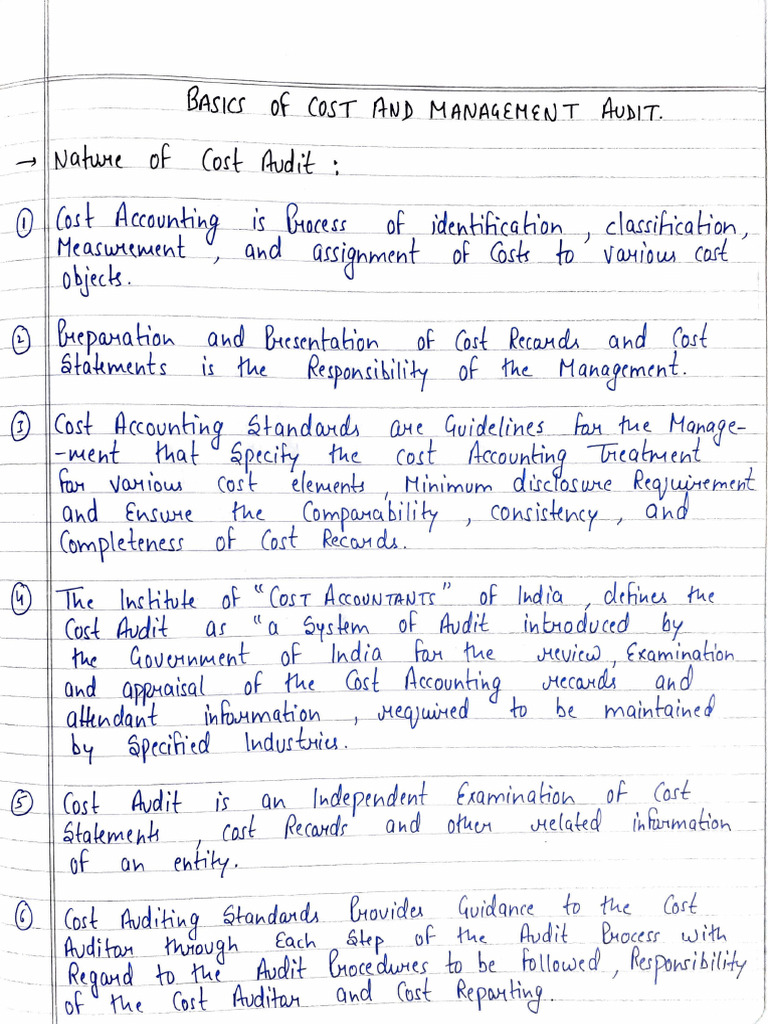 BASICS OF COST AND MANAGEMENT AUDIT.
→ Nature of Cost Audit :
① Cost Accounting is Process of identification , classification,
Measurement , and assignment of Costs to various cost
objects.
② Preparation and Presentation of Cost Records and Cost
Statements is the Responsibility of the Management.
③ Cost Accounting Standards are Guidelines for the Manage-
-ment that Specify the cost Accounting Treatment
for various cost elements , Minimum disclosure Requirement
and Ensure the Comparability , consistency , and
Completeness of Cost Records.
④ The Institute of "COST ACCOUNTANTS" of India , defines the
Cost Audit as "a System of Audit introduced by
the Government of India for the review, Examination
and appraisal of the Cost Accounting records and
attendant information , required to be maintained
by Specified Industries.
⑤ Cost Audit is an Independent Examination of Cost
Statements , cost Records and other related information
of an entity.
⑥ Cost Auditing Standards Provides Guidance to the Cost
Auditor through Each Step of the Audit Process with
Regard to the Audit Procedures to be followed, Responsibility
of the Cost Auditor and Cost Reporting.